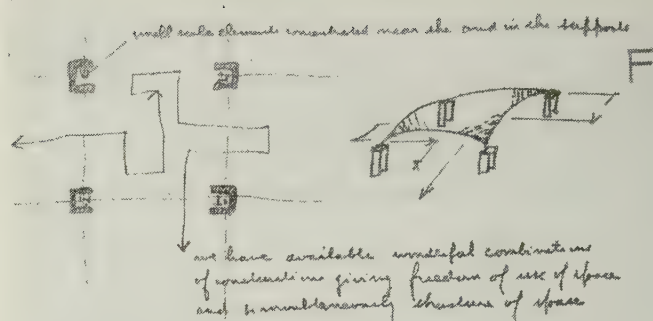 small scale elements concentrated near the and in the supports
F
x
we have available wonderful combinations
of constructions giving freedom of use of space
and simultaneously structure of space